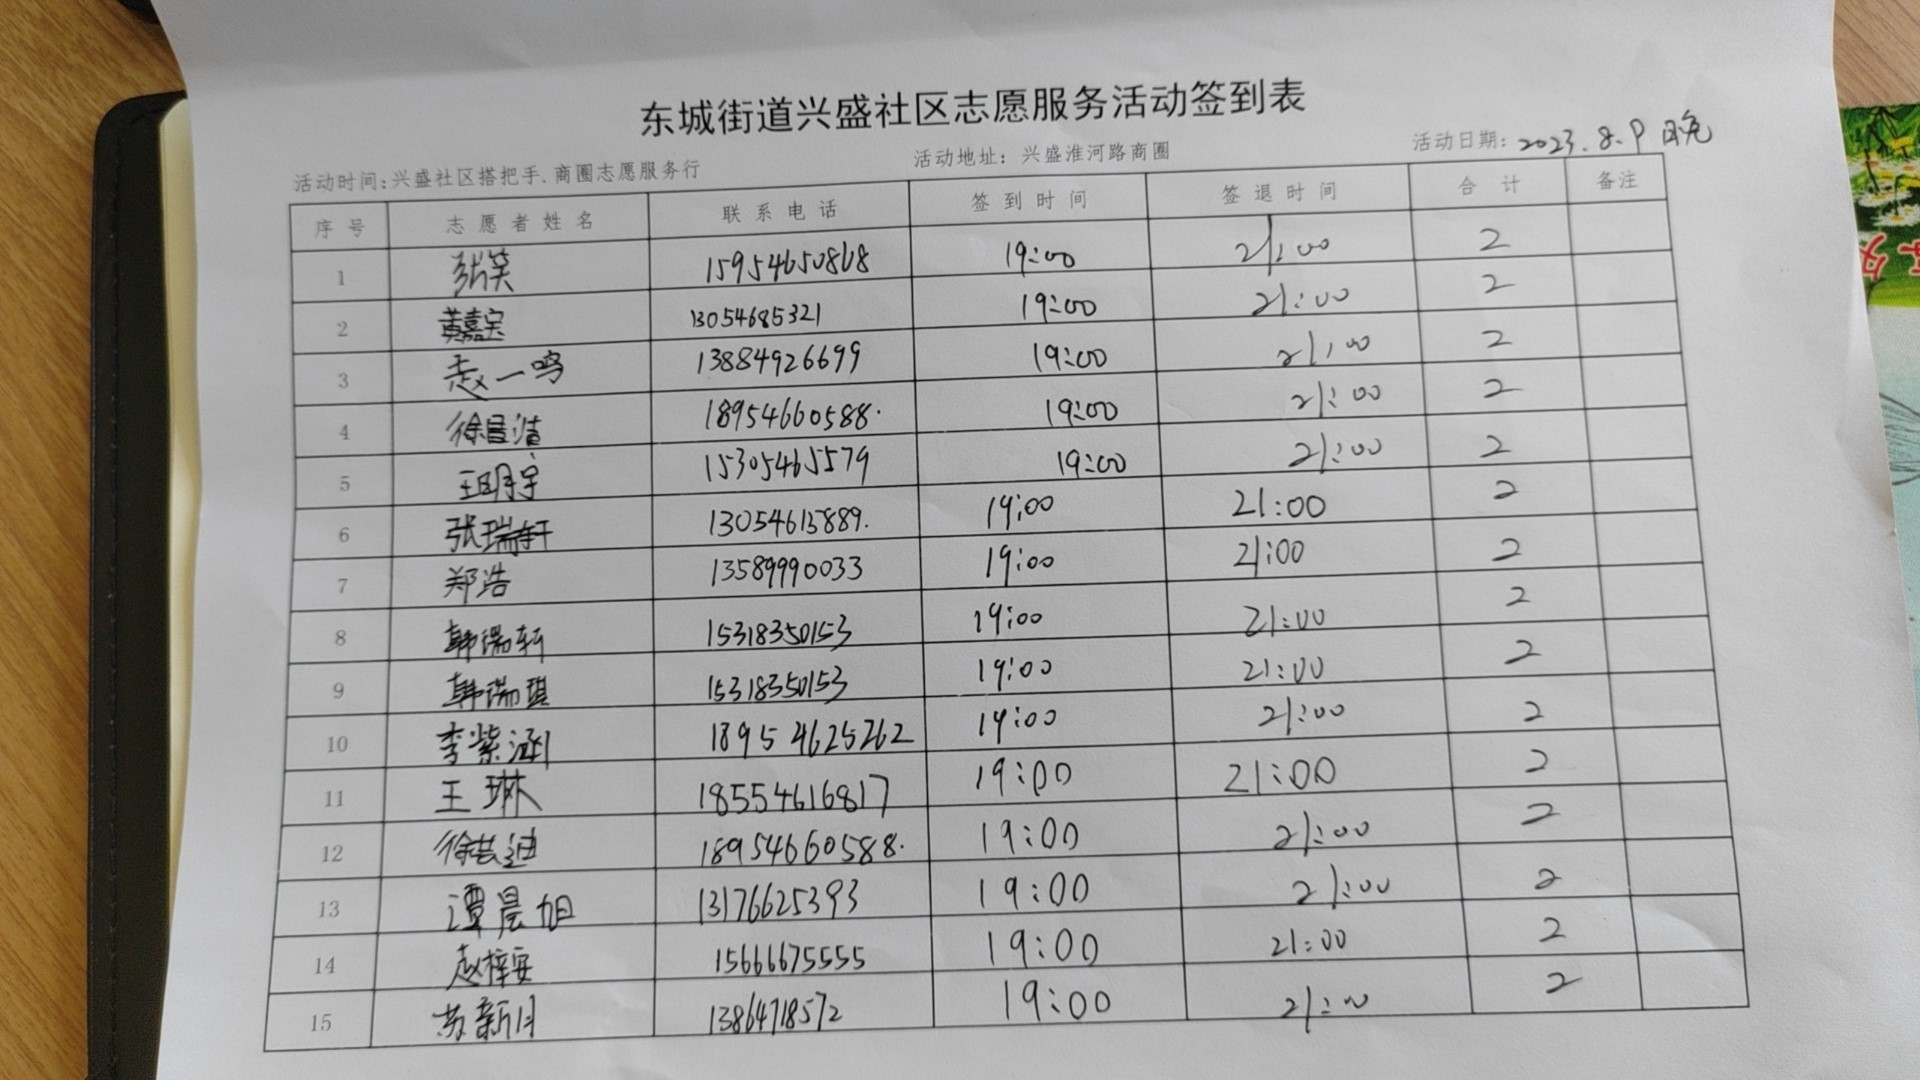 东城街道兴盛社区志愿服务活动签到表
活动时间:兴盛社区搭把手、商圈志愿服务行 活动地址：兴盛淮河路商圈 活动日期：2023.8.9 晚
序号 志愿者姓名 联系电话 签到时间 签退时间 合计 备注
1 张笑 15954650868 19:00 21:00 2
2 黄嘉宝 13054685321 19:00 21:00 2
3 赵一鸣 13884926699 19:00 21:00 2
4 徐 18954660588. 19:00 21:00 2
5 王明宇 15305465579 19:00 21:00 2
6 张瑞轩 13054615889. 19:00 21:00 2
7 郑浩 13589990033 19:00 21:00 2
8 韩瑞轩 15318350153 19:00 21:00 2
9 韩瑞琪 15318350153 19:00 21:00 2
10 李紫涵 18954625262 19:00 21:00 2
11 王琳 18554616817 19:00 21:00 2
12 徐 18954660588. 19:00 21:00 2
13 谭晨旭 13176625393 19:00 21:00 2
14 赵梓安 15666675555 19:00 21:00 2
15 苏新月 13864718572 19:00 21:00 2